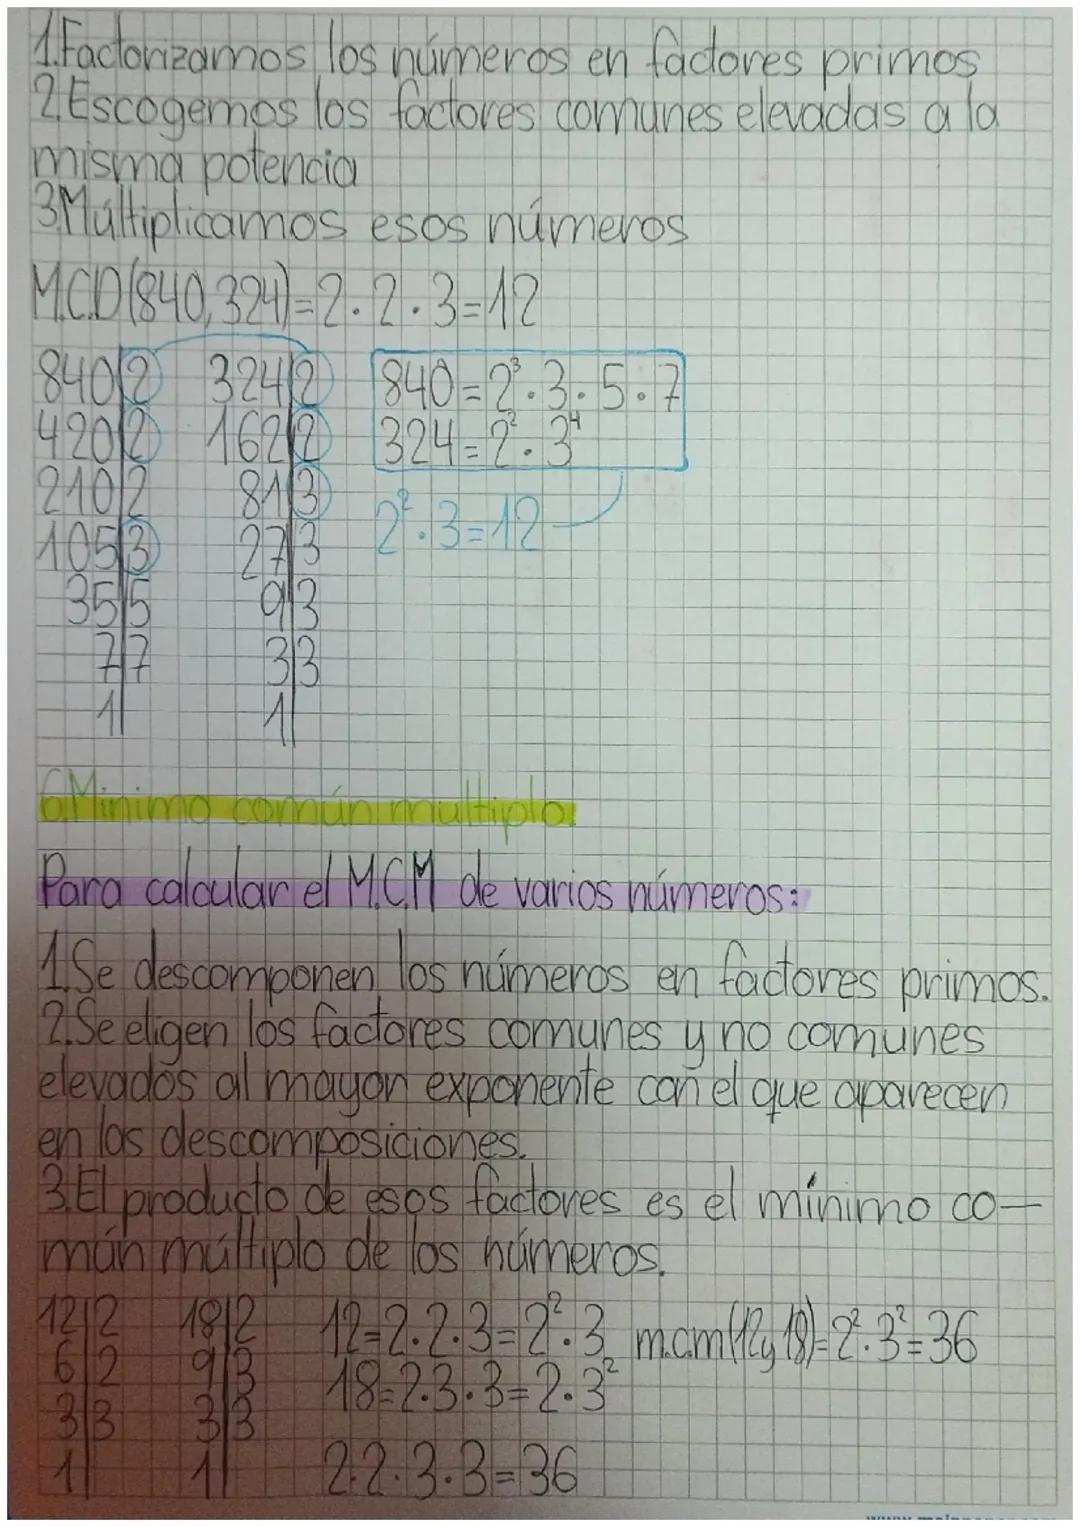 1.Factorizamos los números en factores primos
2.Escogemos los factores comunes elevadas a la
misma potencia
3Múltiplicamos esos números
M.C.D(840,324)=2·2·3=12
840|2 324|2 840=2³·3·5·7
420|2 162|2 324=2²·3⁴
210|2 81|3
105|3 27|3 2²·3=12
35|5 9|3
7|7 3|3
1| 1|
6.Minimo común multiplo.
Para calcular el M.C.M de varios números:
1.Se descomponen los números en factores primos.
2.Se eligen los factores comunes y no comunes
elevados al mayor exponente con el que aparecen
en las descomposiciones.
3.El producto de esos factores es el mínimo co-
mún múltiplo de los números.
12|2 18|2 12=2·2·3=2²·3 m.c.m(12y 18)=2²·3²=36
6|2 9|3 18=2·3·3=2·3²
3|3 3|3
1| 1| 2·2·3·3=36